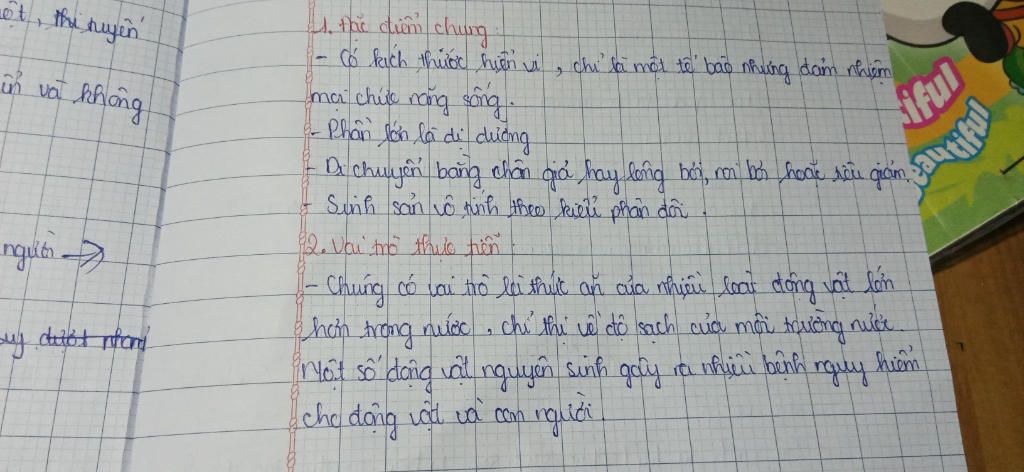 ột, thì huyền
và không
người →
1. Đặc điểm chung.
- Có kích thước hiển vi, chỉ là một tế bào nhưng đảm nhiệm
mọi chức năng sống.
- Phần lớn là dị dưỡng
- Di chuyển bằng chân giả hay lông bơi, roi bơi hoặc tiêu giảm.
- Sinh sản vô tính theo kiểu phân đôi.
2. Vai trò thực tiễn
- Chúng có vai trò là thức ăn của nhiều loài động vật lớn
hơn trong nước, chỉ thị về độ sạch của môi trường nước.
Một số động vật nguyên sinh gây ra nhiều bệnh nguy hiểm
cho động vật và con người.
iful
eautiful